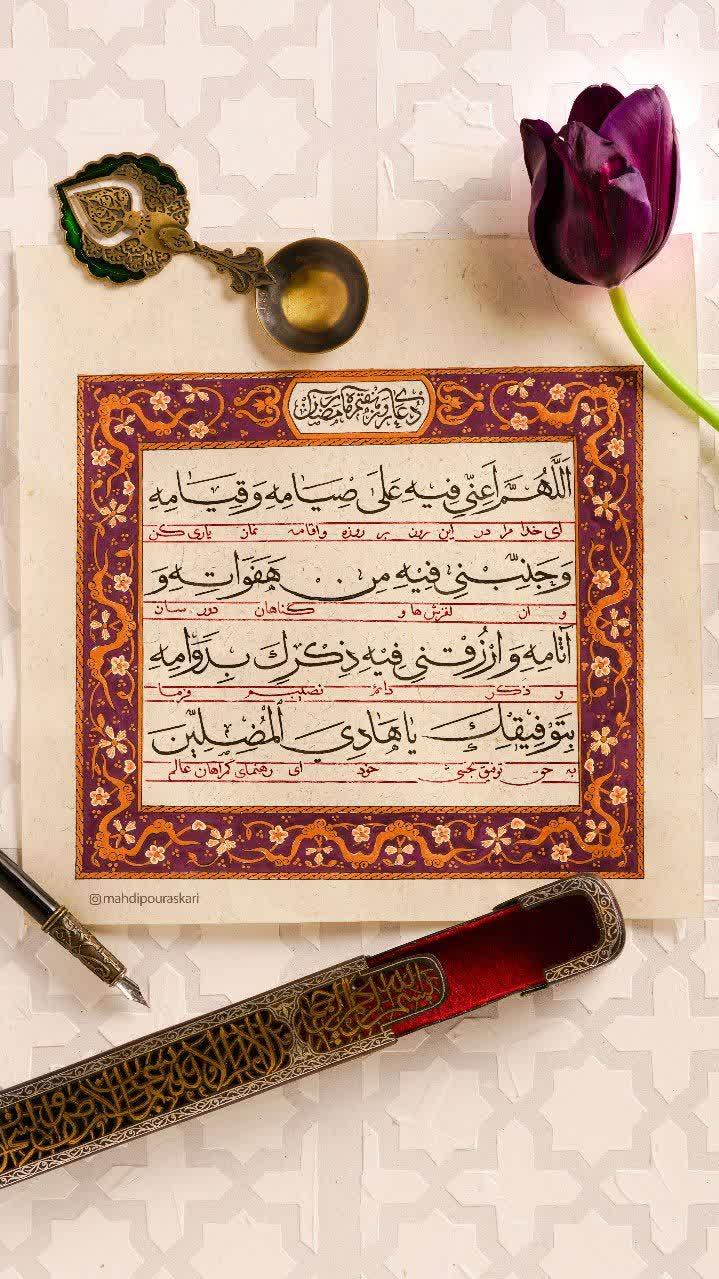 دعای روز هفتم ماه رمضان
اَللّٰهُمَّ اَعِنّي فيهِ عَلىٰ صِيامِهِ وَ قِيامِهِ
ای خدا مرا در این روز بر روزه و اقامه نماز یاری کن
وَ جَنِّبْني فيهِ مِن هَفَواتِهِ وَ
و از لغزش ها و گناهان دور ساز
آثامِهِ وَ ارْزُقْني فيهِ ذِكْرَكَ بِدَوامِهِ
و ذکر دائم نصیبم فرما
بِتَوْفيقِكَ يا هادِيَ الْمُضِلّينَ
به حق توفیق بخشی خود ای رهنمای گمراهان عالم
mahdipouraskari
بسم الله الرحمن الرحيم